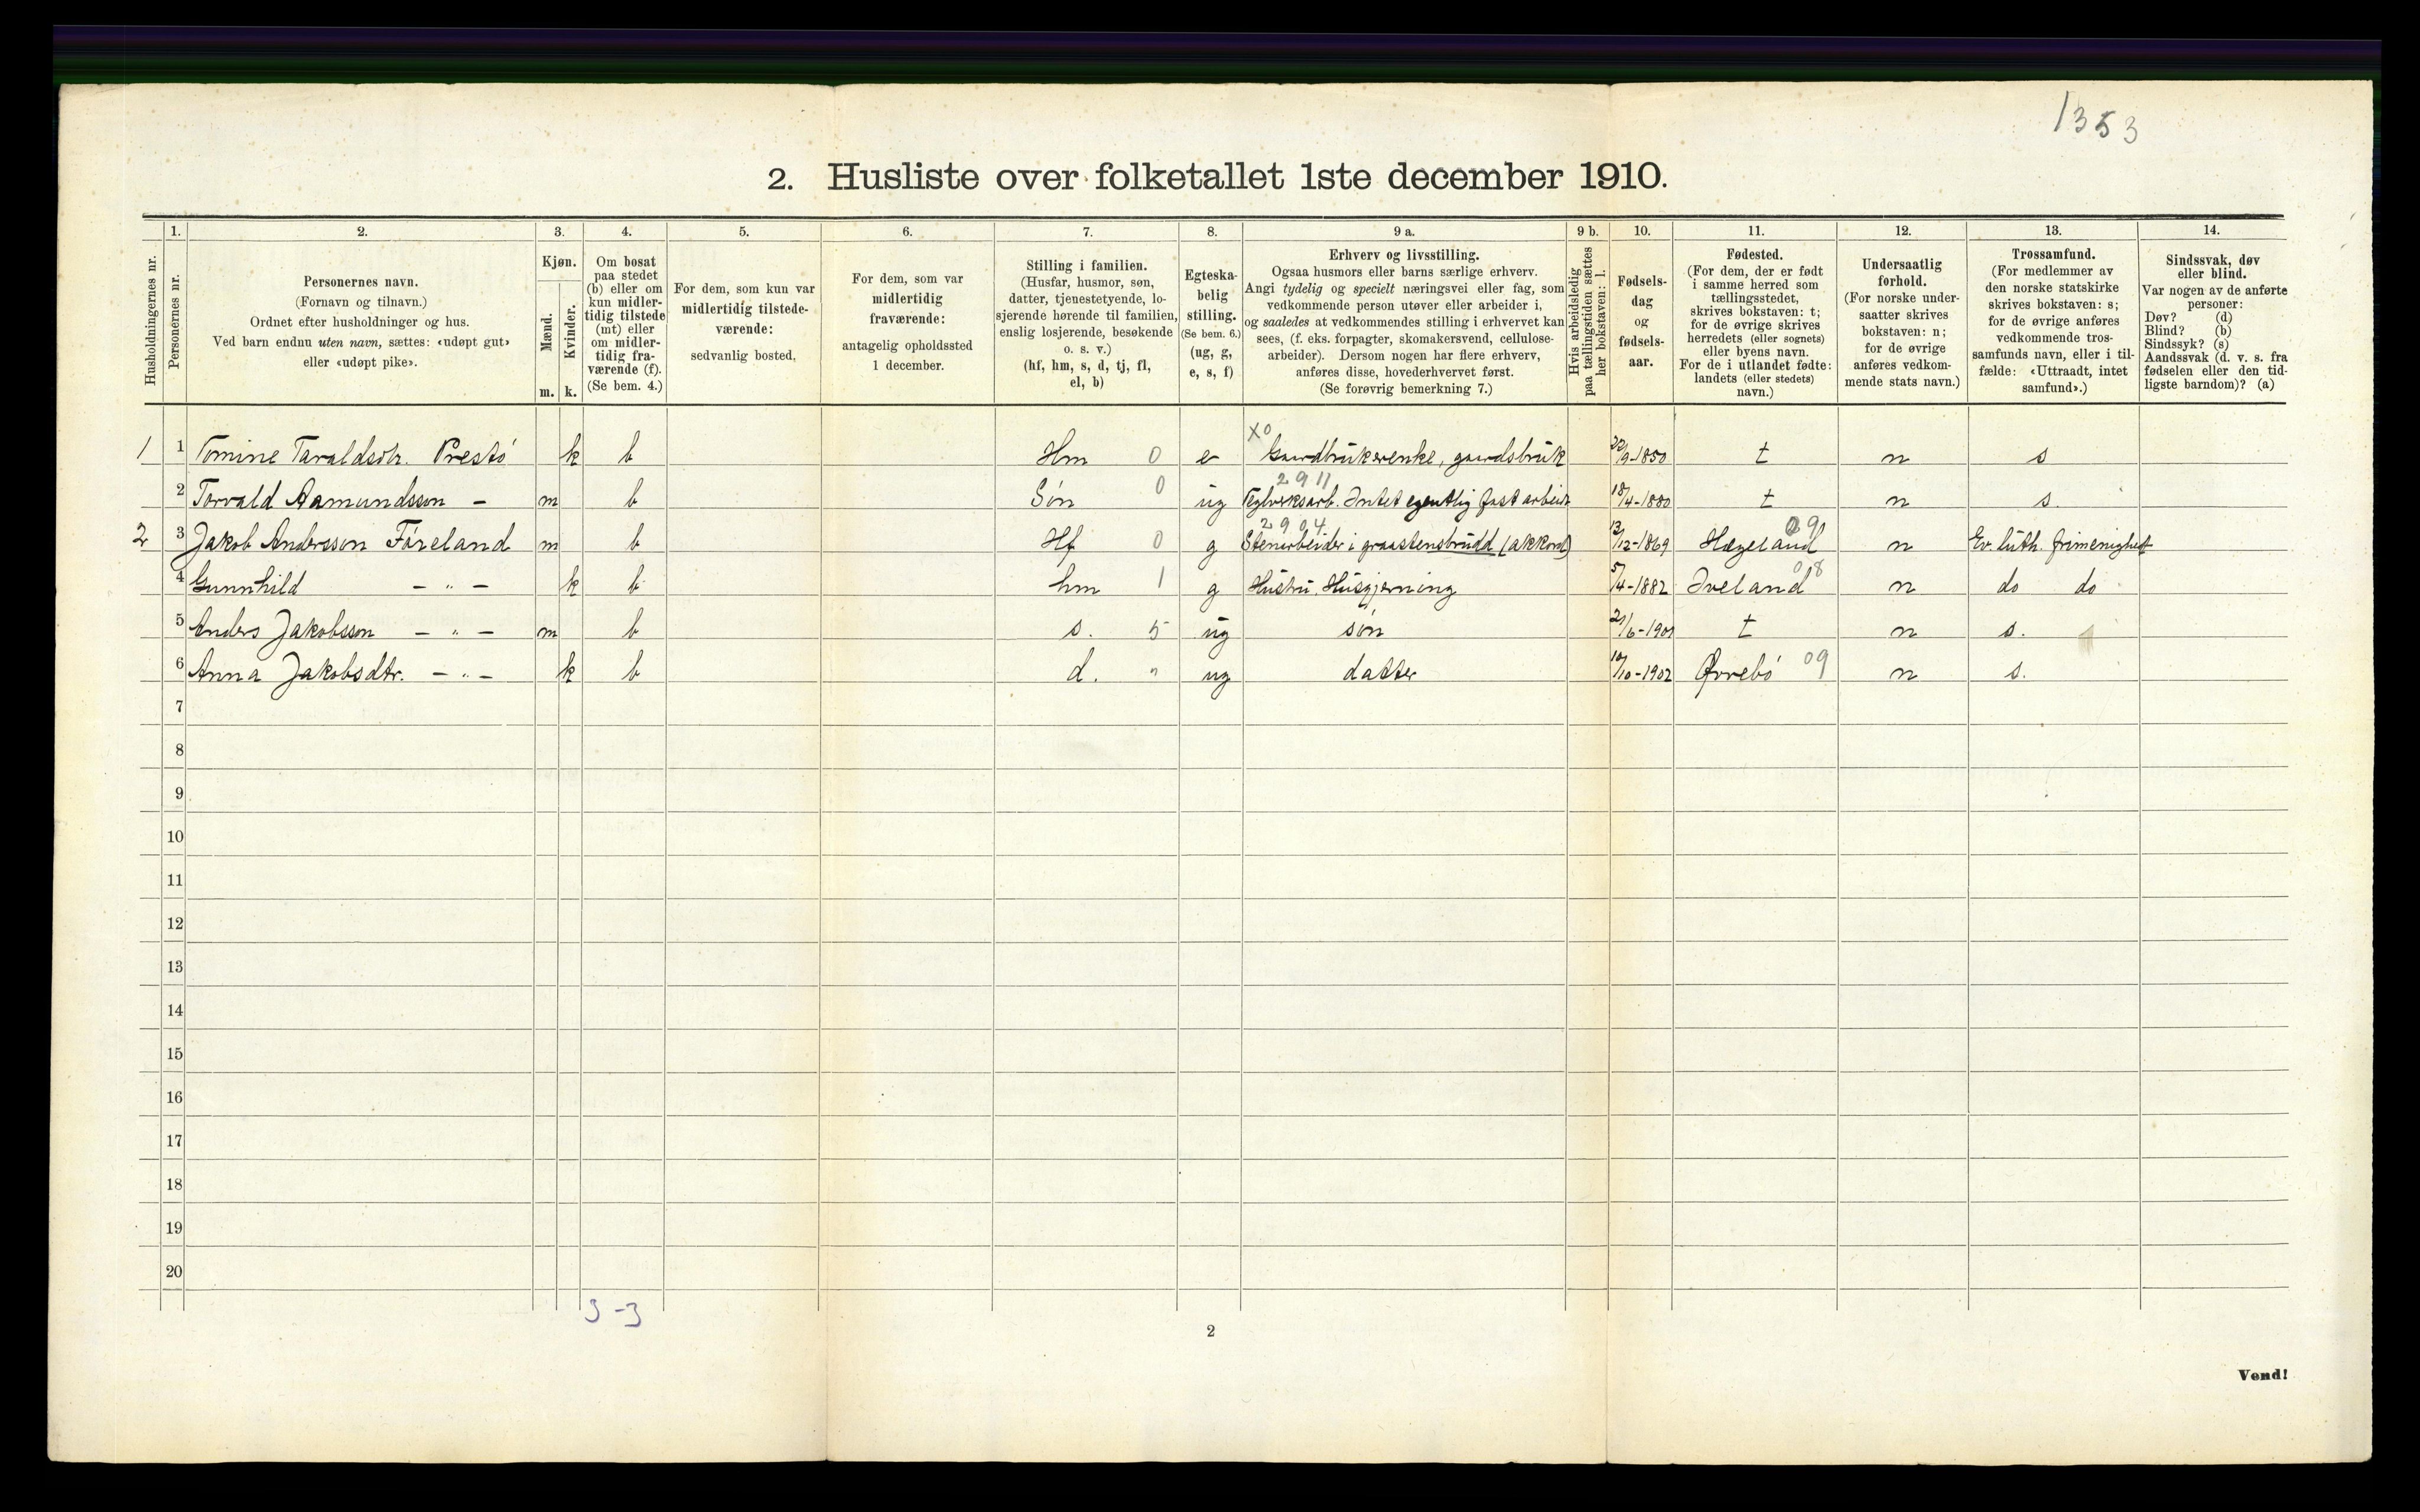 1353
2. Husliste over folketallet 1ste december 1910.
Husholdningernes nr.
1.
Personernes nr.
2.
Personernes navn.
(Fornavn og tilnavn.)
Ordnet efter husholdninger og hus.
Ved barn endnu uten navn, sættes: «udøpt gut»
eller «udøpt pike».
3.
Kjøn.
Mænd.
m.
Kvinder.
k.
4.
Om bosat
paa stedet
(b) eller om
kun midler-
tidig tilstede
(mt) eller
om midler-
tidig fra-
værende (f).
(Se bem. 4.)
5.
For dem, som kun var
midlertidig tilstede-
værende:
sedvanlig bosted.
6.
For dem, som var
midlertidig
fraværende:
antagelig opholdssted
1 december.
7.
Stilling i familien.
(Husfar, husmor, søn,
datter, tjenestetyende, lo-
sjerende hørende til familien,
enslig losjerende, besøkende
o. s. v.)
(hf, hm, s, d, tj, fl,
el, b)
8.
Egteska-
belig
stilling.
(Se bem. 6.)
(ug, g,
e, s, f)
9 a.
Erhverv og livsstilling.
Ogsaa husmors eller barns særlige erhverv.
Angi tydelig og specielt næringsvei eller fag, som
vedkommende person utøver eller arbeider i,
og saaledes at vedkommendes stilling i erhvervet kan
sees, (f. eks. forpagter, skomakersvend, cellulose-
arbeider). Dersom nogen har flere erhverv,
anføres disse, hovederhvervet først.
(Se forøvrig bemerkning 7.)
9 b.
Hvis arbeidsledig
paa tællingstiden sættes
her bokstaven: l.
10.
Fødsels-
dag
og
fødsels-
aar.
11.
Fødested.
(For dem, der er født
i samme herred som
tællingsstedet,
skrives bokstaven: t;
for de øvrige skrives
herredets (eller sognets)
eller byens navn.
For de i utlandet fødte:
landets (eller stedets)
navn.)
12.
Undersaatlig
forhold.
(For norske under-
saatter skrives
bokstaven: n;
for de øvrige
anføres vedkom-
mende stats navn.)
13.
Trossamfund.
(For medlemmer av
den norske statskirke
skrives bokstaven: s;
for de øvrige anføres
vedkommende tros-
samfunds navn, eller i til-
fælde: «Uttraadt, intet
samfund».)
14.
Sindssvak, døv
eller blind.
Var nogen av de anførte
personer:
Døv? (d)
Blind? (b)
Sindssyk? (s)
Aandssvak (d. v. s. fra
fødselen eller den tid-
ligste barndom)? (a)
X0
1 1 Tomine Taraldsdtr. Prestö k b Hm 0 e Gaardbrukerenke, gaardsbruk 22/9-1850 t n s
2911
2 Torvald Aamundsson - m b Sön 0 ug Teglverksarb. Intet egentlig fast arbeide 18/4-1880 t n s.
2904
2 3 Jakob Andersson Föreland m b Hf 0 g Stenarbeider i graastensbrudd (akkord) 13/12-1869 Hægeland 09 n Ev. luth. frimenighet
4 Gunnhild - " - k b hm 1 g Hustru. Husgjerning 5/4-1882 Iveland 08 n do do
5 Anders Jakobsson - " - m b s. 5 ug sön 21/6-1901 t n s.
6 Anna Jakobsdtr. - " - k b d. " ug datter 10/10-1902 Øvrebö 09 n s.
7
8
9
10
11
12
13
14
15
16
17
18
19
20
3-3
2
Vend!